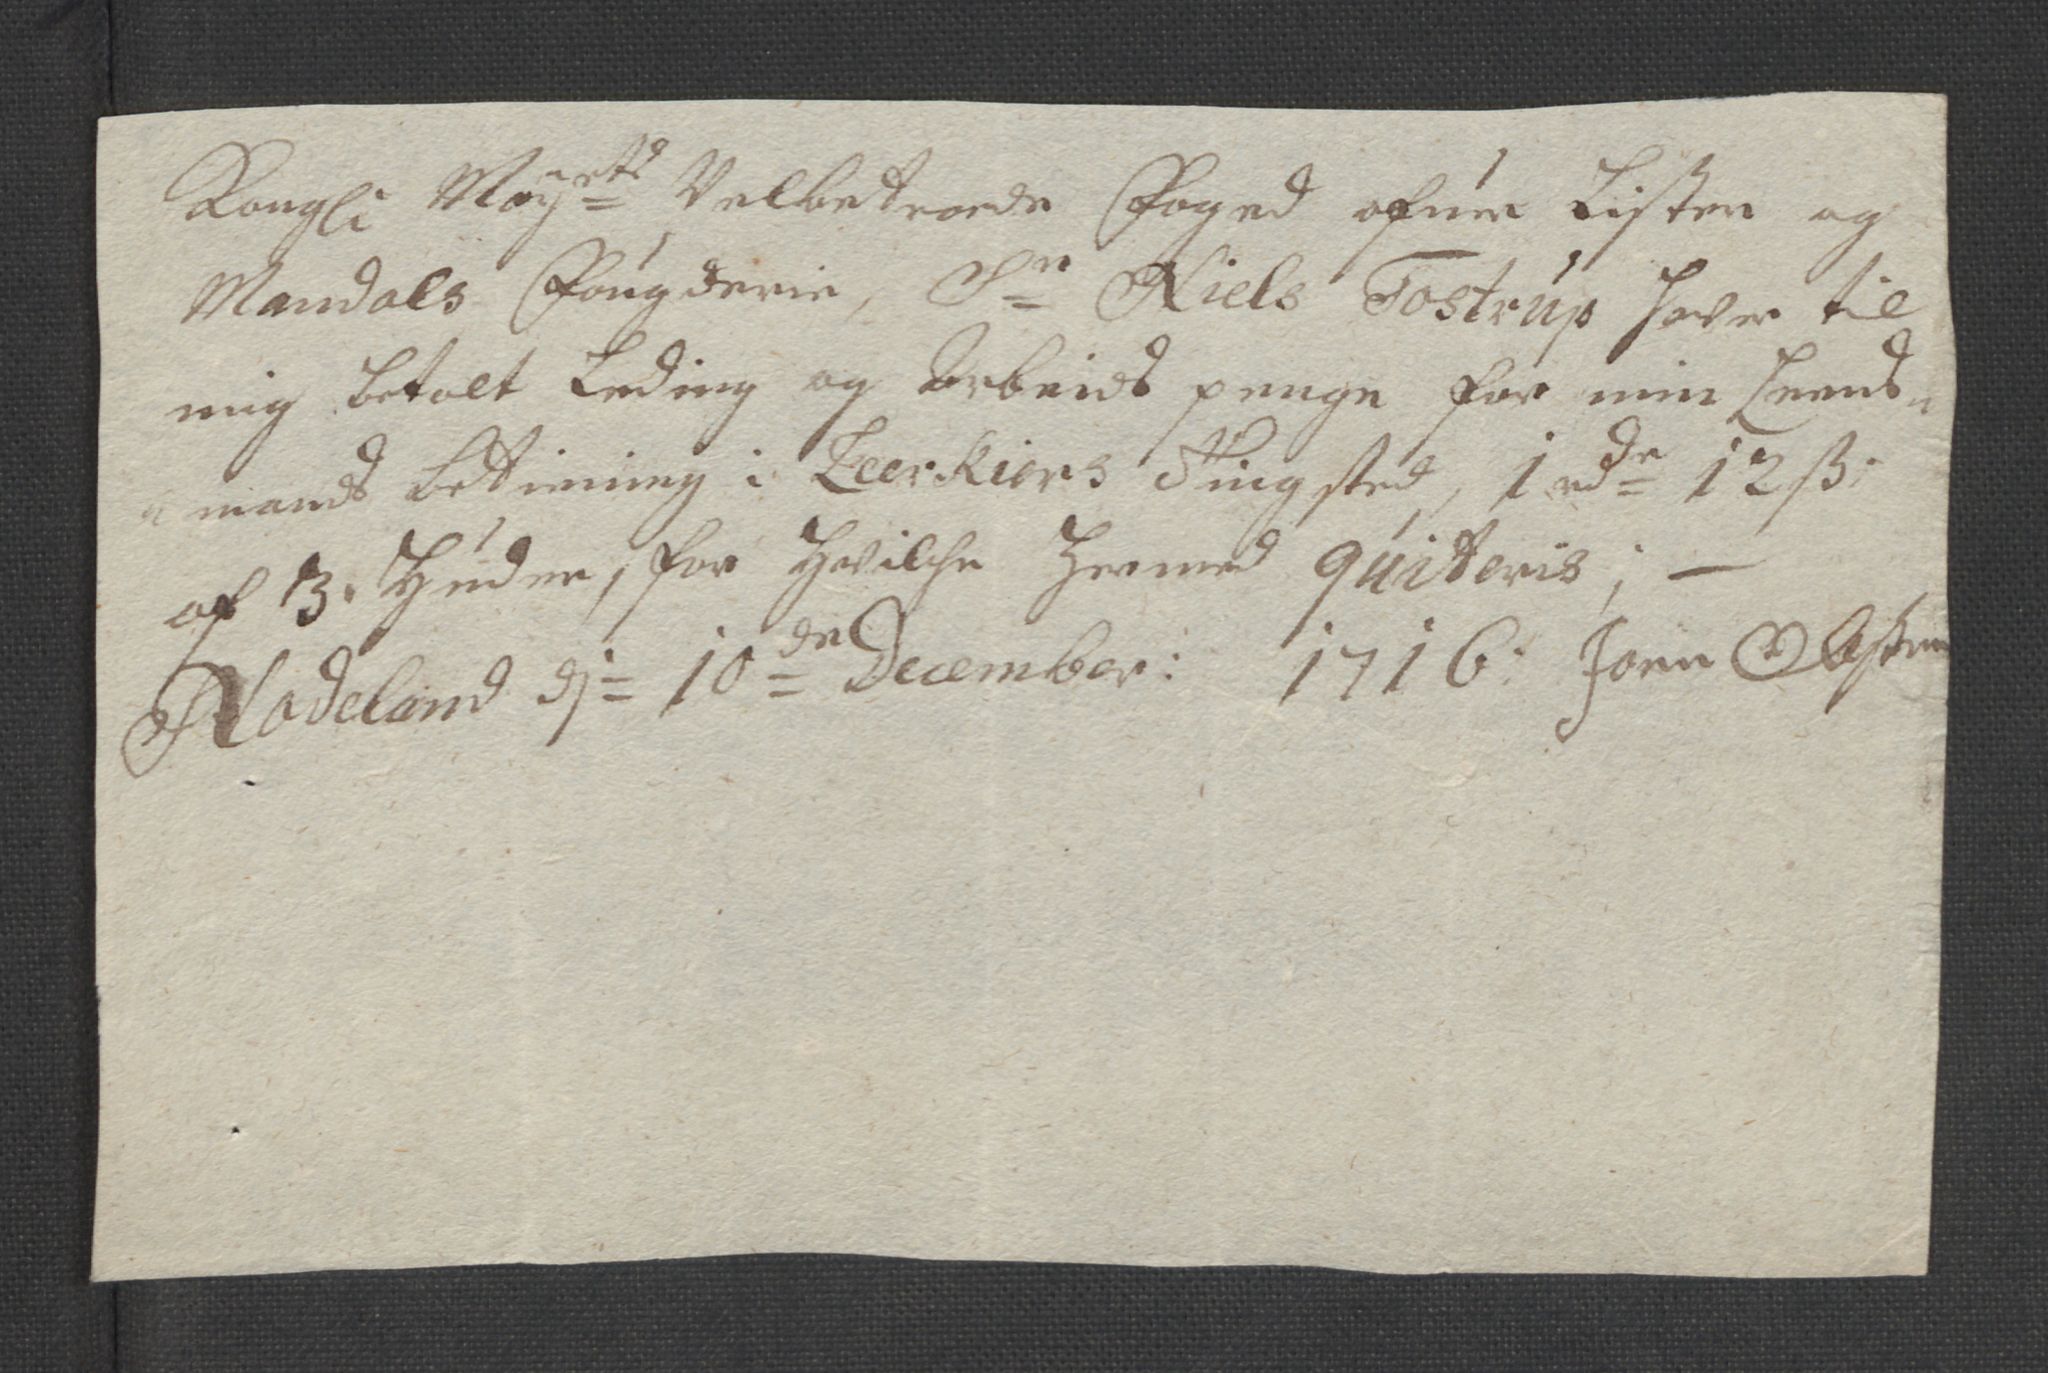 Kongli Mayets Velbetroede Foged ofuer Lister og
Mandals Fougderie, Sr Niels Tostrup hauer til
mig betalt Leding og Arbeids penge for min Leens„
„mands bestiening i Leerkiers Tingsted, 1 rdr 12 ß:
af 3. Huder, for hvilche hermed quiteris; —
Nodeland dj 10de December: 1716: Joen